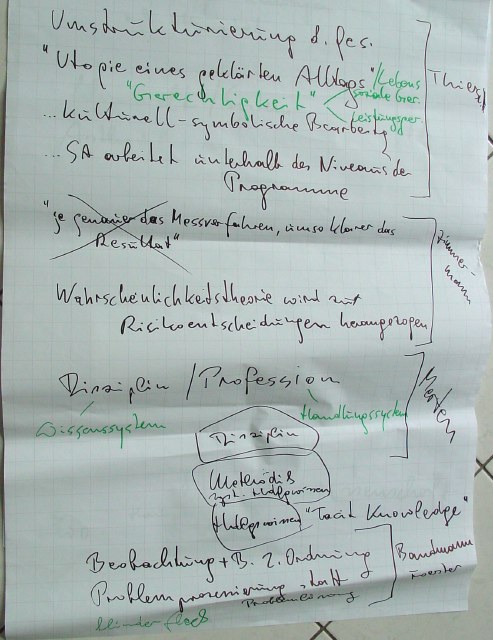 Umstrukturierung d. Ges.
"Utopie eines geklärten Alltags"/Lebens
"Gerechtigkeit" soziale Ger.
Leistungsger
Thiersch
... kulturell-symbolische Bearbeitg
... SA arbeitet unterhalb des Niveaus der
Programme
"je genauer das Messverfahren, umso klarer das
Resultat"
Zimmer-
mann
Wahrscheinlichkeitstheorie wird zur
Risikoentscheidungen herangezogen
Disziplin / Profession
Wissenssystem
Handlungssystem
Merten
Disziplin
Methodik
Hdlgswissen
Hdlgswissen "Tacit Knowledge"
Beobachtung + B. 2. Ordnung
Problemprozessierung statt
Problemlösung
blinder fleck
Bardmann
Foerster